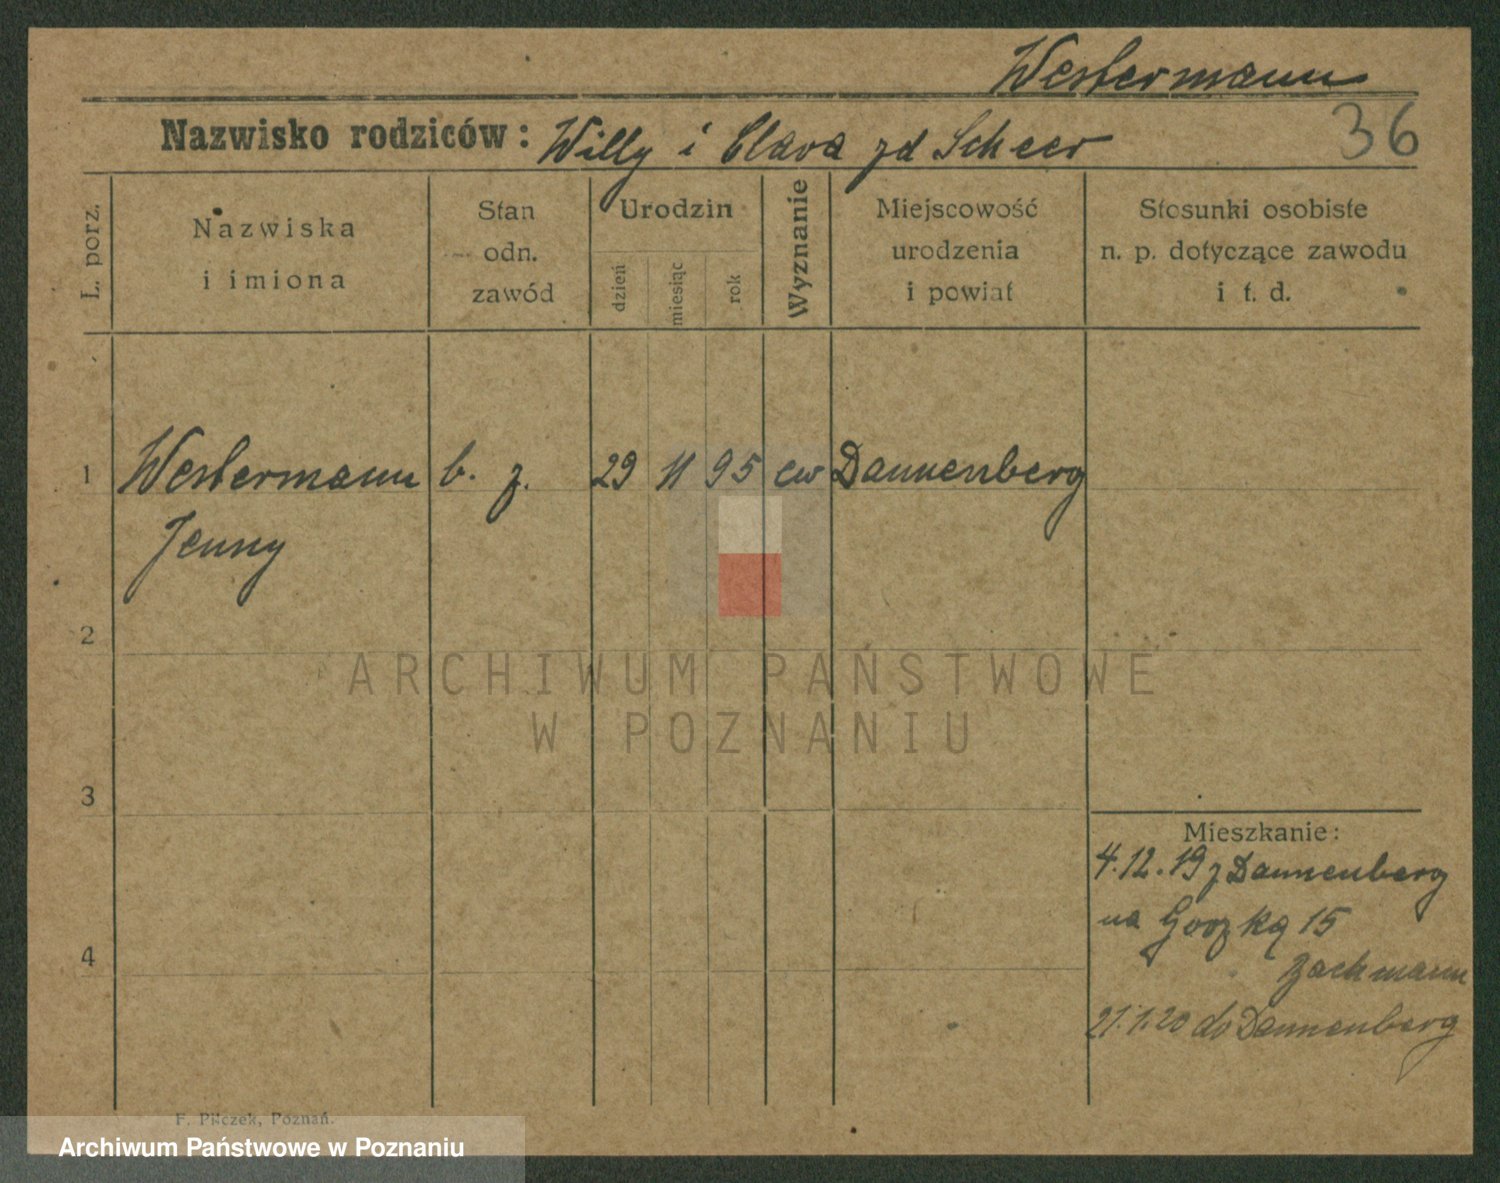 Westermann
36
Nazwisko rodziców: Willy i Clara zd Scheer
L. porz.
Nazwiska
i imiona
Stan
odn.
zawód
Urodzin
dzień
miesiąc
rok
Wyznanie
Miejscowość
urodzenia
i powiat
Stosunki osobiste
n. p. dotyczące zawodu
i t. d.
1 Westermann b. z. 29 11 95 ew Dannenberg
Jenny
2
ARCHIWUM PAŃSTWOWE
W POZNANIU
3
Mieszkanie:
4.12.19 z Dannenberg
na 15
4
Zachmann
21.1.20 do Dannenberg
F. Pilczek, Poznań.
Archiwum Państwowe w Poznaniu